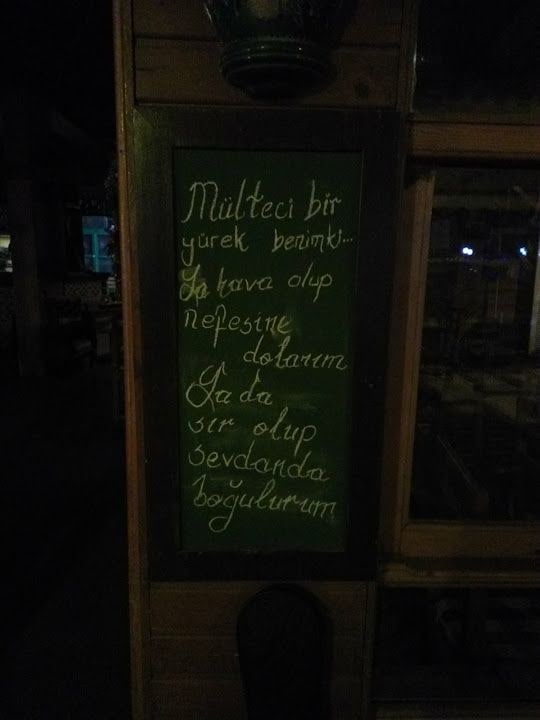 Mülteci bir
yürek benimki...
Ya hava olup
nefesine
dolarım
Ya da
sır olup
sevdanda
boğulurum